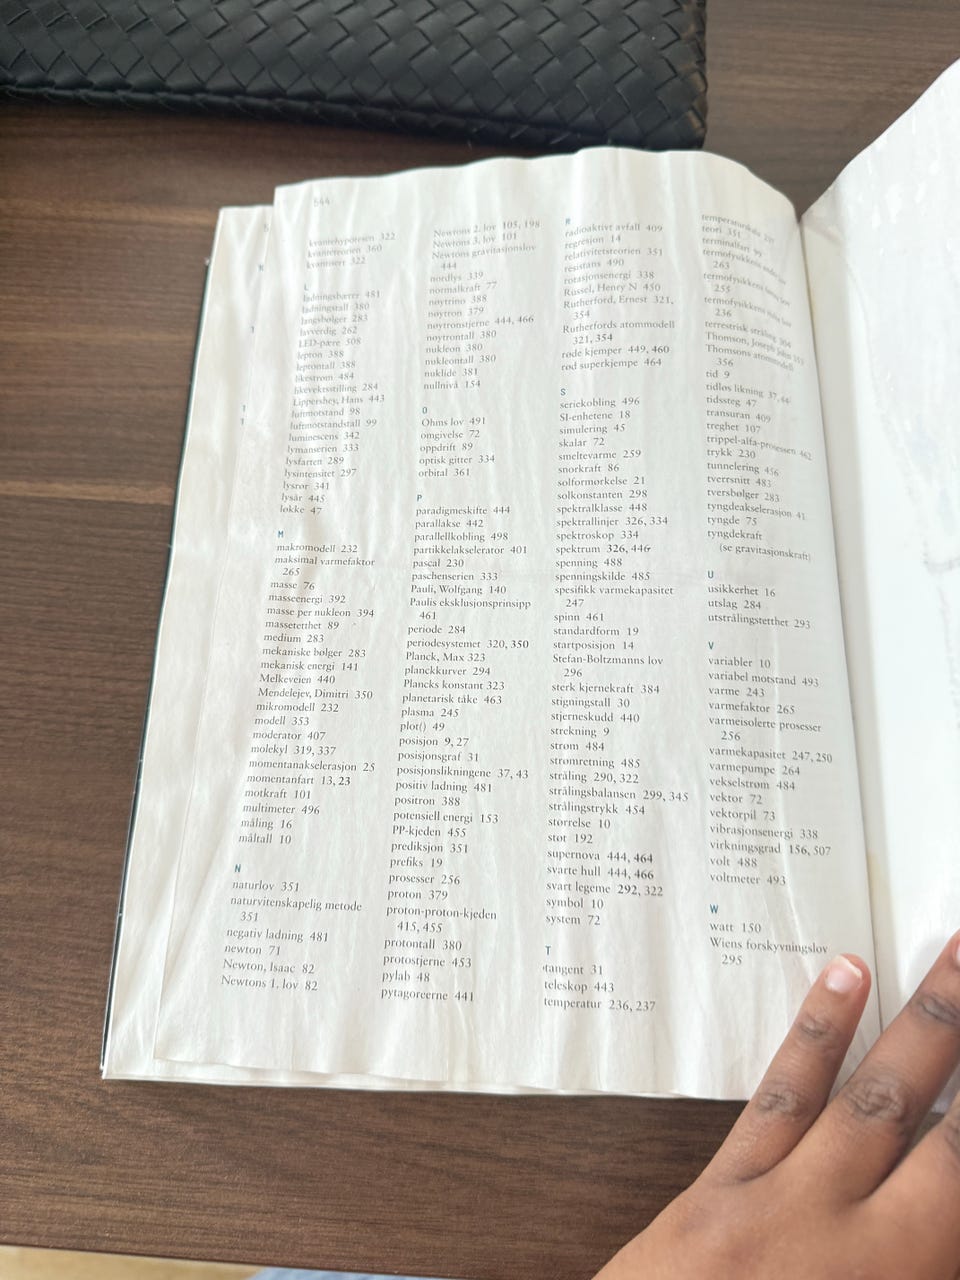 544
kvantehypotesen 322
kvanteteorien 360
kvantisert 322
L
ladningsbærer 481
ladningstall 380
langsbølger 283
lavverdig 262
LED-pære 508
lepton 388
leptontall 388
likestrøm 484
likevektsstilling 284
Lippershey, Hans 443
luftmotstand 98
luftmotstandstall 99
luminescens 342
lymanserien 333
lysfarten 289
lysintensitet 297
lysrør 341
lysår 445
løkke 47
M
makromodell 232
maksimal varmefaktor
265
masse 76
masseenergi 392
masse per nukleon 394
massetetthet 89
medium 283
mekaniske bølger 283
mekanisk energi 141
Melkeveien 440
Mendelejev, Dimitri 350
mikromodell 232
modell 353
moderator 407
molekyl 319, 337
momentanakselerasjon 25
momentanfart 13, 23
motkraft 101
multimeter 496
måling 16
måltall 10
N
naturlov 351
naturvitenskapelig metode
351
negativ ladning 481
newton 71
Newton, Isaac 82
Newtons 1. lov 82
Newtons 2. lov 105, 198
Newtons 3. lov 101
Newtons gravitasjonslov
444
nordlys 339
normalkraft 77
nøytrino 388
nøytron 379
nøytronstjerne 444, 466
nøytrontall 380
nukleon 380
nukleontall 380
nuklide 381
nullnivå 154
O
Ohms lov 491
omgivelse 72
oppdrift 89
optisk gitter 334
orbital 361
P
paradigmeskifte 444
parallakse 442
parallellkobling 498
partikkelakselerator 401
pascal 230
paschenserien 333
Pauli, Wolfgang 140
Paulis eksklusjonsprinsipp
461
periode 284
periodesystemet 320, 350
Planck, Max 323
planckkurver 294
Plancks konstant 323
planetarisk tåke 463
plasma 245
plot() 49
posisjon 9, 27
posisjonsgraf 31
posisjonslikningene 37, 43
positiv ladning 481
positron 388
potensiell energi 153
PP-kjeden 455
prediksjon 351
prefiks 19
prosesser 256
proton 379
proton-proton-kjeden
415, 455
protontall 380
protostjerne 453
pylab 48
pytagoreerne 441
R
radioaktivt avfall 409
regresjon 14
relativitetsteorien 351
resistans 490
rotasjonsenergi 338
Russel, Henry N 450
Rutherford, Ernest 321,
354
Rutherfords atommodell
321, 354
røde kjemper 449, 460
rød superkjempe 464
S
seriekobling 496
SI-enhetene 18
simulering 45
skalar 72
smeltevarme 259
snorkraft 86
solformørkelse 21
solkonstanten 298
spektralklasse 448
spektrallinjer 326, 334
spektroskop 334
spektrum 326, 446
spenning 488
spenningskilde 485
spesifikk varmekapasitet
247
spinn 461
standardform 19
startposisjon 14
Stefan-Boltzmanns lov
296
sterk kjernekraft 384
stigningstall 30
stjerneskudd 440
strekning 9
strøm 484
strømretning 485
stråling 290, 322
strålingsbalansen 299, 345
strålingstrykk 454
størrelse 10
støt 192
supernova 444, 464
svarte hull 444, 466
svart legeme 292, 322
symbol 10
system 72
T
tangent 31
teleskop 443
temperatur 236, 237
temperaturskala 237
teori 351
terminalfart 99
termofysikkens andre lov
263
termofysikkens første lov
255
termofysikkens nulte lov
236
terrestrisk stråling 304
Thomson, Joseph John 353
Thomsons atommodell
356
tid 9
tidløs likning 37, 44
tidssteg 47
transuran 409
treghet 107
trippel-alfa-prosessen 462
trykk 230
tunnelering 456
tverrsnitt 483
tversbølger 283
tyngdeakselerasjon 41
tyngde 75
tyngdekraft
(se gravitasjonskraft)
U
usikkerhet 16
utslag 284
utstrålingstetthet 293
V
variabler 10
variabel motstand 493
varme 243
varmefaktor 265
varmeisolerte prosesser
256
varmekapasitet 247, 250
varmepumpe 264
vekselstrøm 484
vektor 72
vektorpil 73
vibrasjonsenergi 338
virkningsgrad 156, 507
volt 488
voltmeter 493
W
watt 150
Wiens forskyvningslov
295